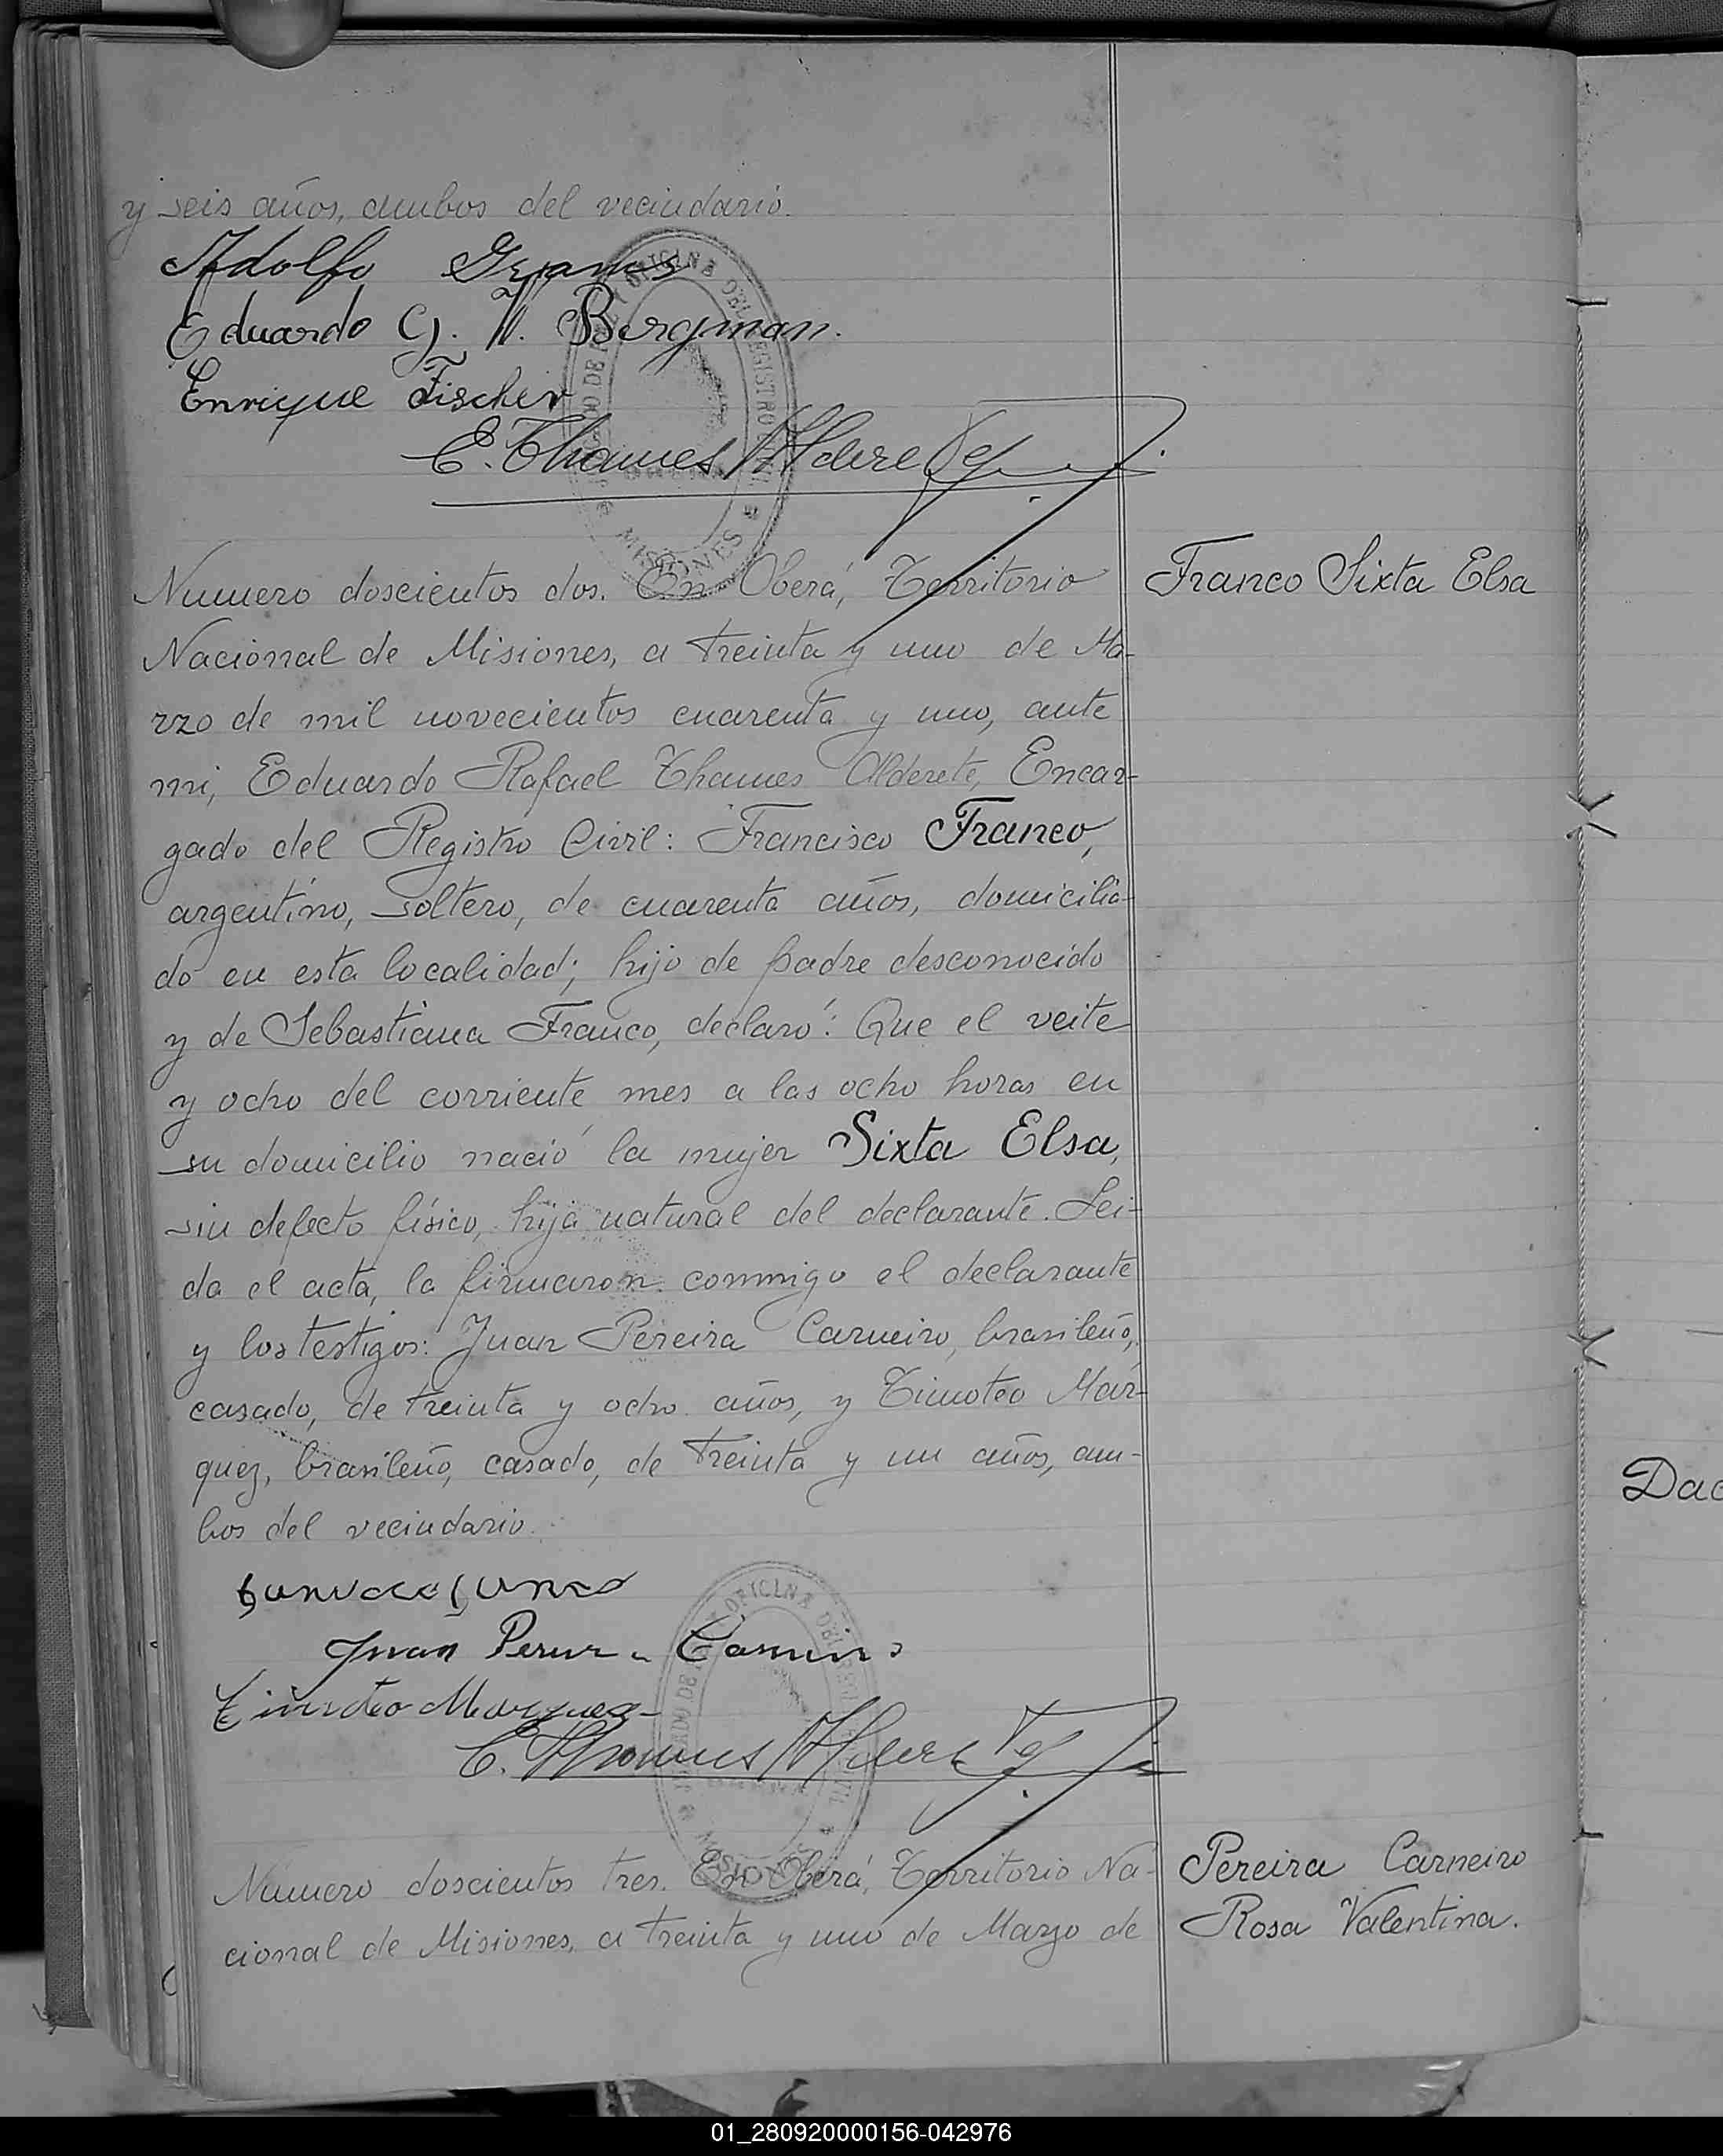 y seis años, ambos del vecindario.
Adolfo
Eduardo G. V. Bergman.
Enrique Fischer
E. Thames Alderete
Numero doscientos dos. En Oberá, Territorio
Franco Sixta Elsa
Nacional de Misiones, a treinta y uno de Ma-
rzo de mil novecientos cuarenta y uno, ante
mi, Eduardo Rafael Thames Alderete, Encar-
gado del Registro Civil: Francisco Franco,
argentino, soltero, de cuarenta años, domicilia-
do en esta localidad; hijo de padre desconocido
y de Sebastiana Franco, declaró: Que el veite
y ocho del corriente mes a las ocho horas en
su domicilio nació la mujer Sixta Elsa,
sin defecto físico, hija natural del declarante. Lei-
da el acta, la firmaron conmigo el declarante
y los testigos: Juan Pereira Carneiro, brasileño,
casado, de treinta y ocho años, y Timoteo Már-
quez, brasileño, casado, de treinta y un años, am-
bos del vecindario.
Juan
Timoteo Marquez
E. Thames Alderete
Numero doscientos tres. En Oberá, Territorio Na-
Pereira Carneiro
cional de Misiones, a treinta y uno de Marzo de
Rosa Valentina.
Dac
OFICINA DEL REGISTRO CIVIL
MISIONES
01_280920000156-042976